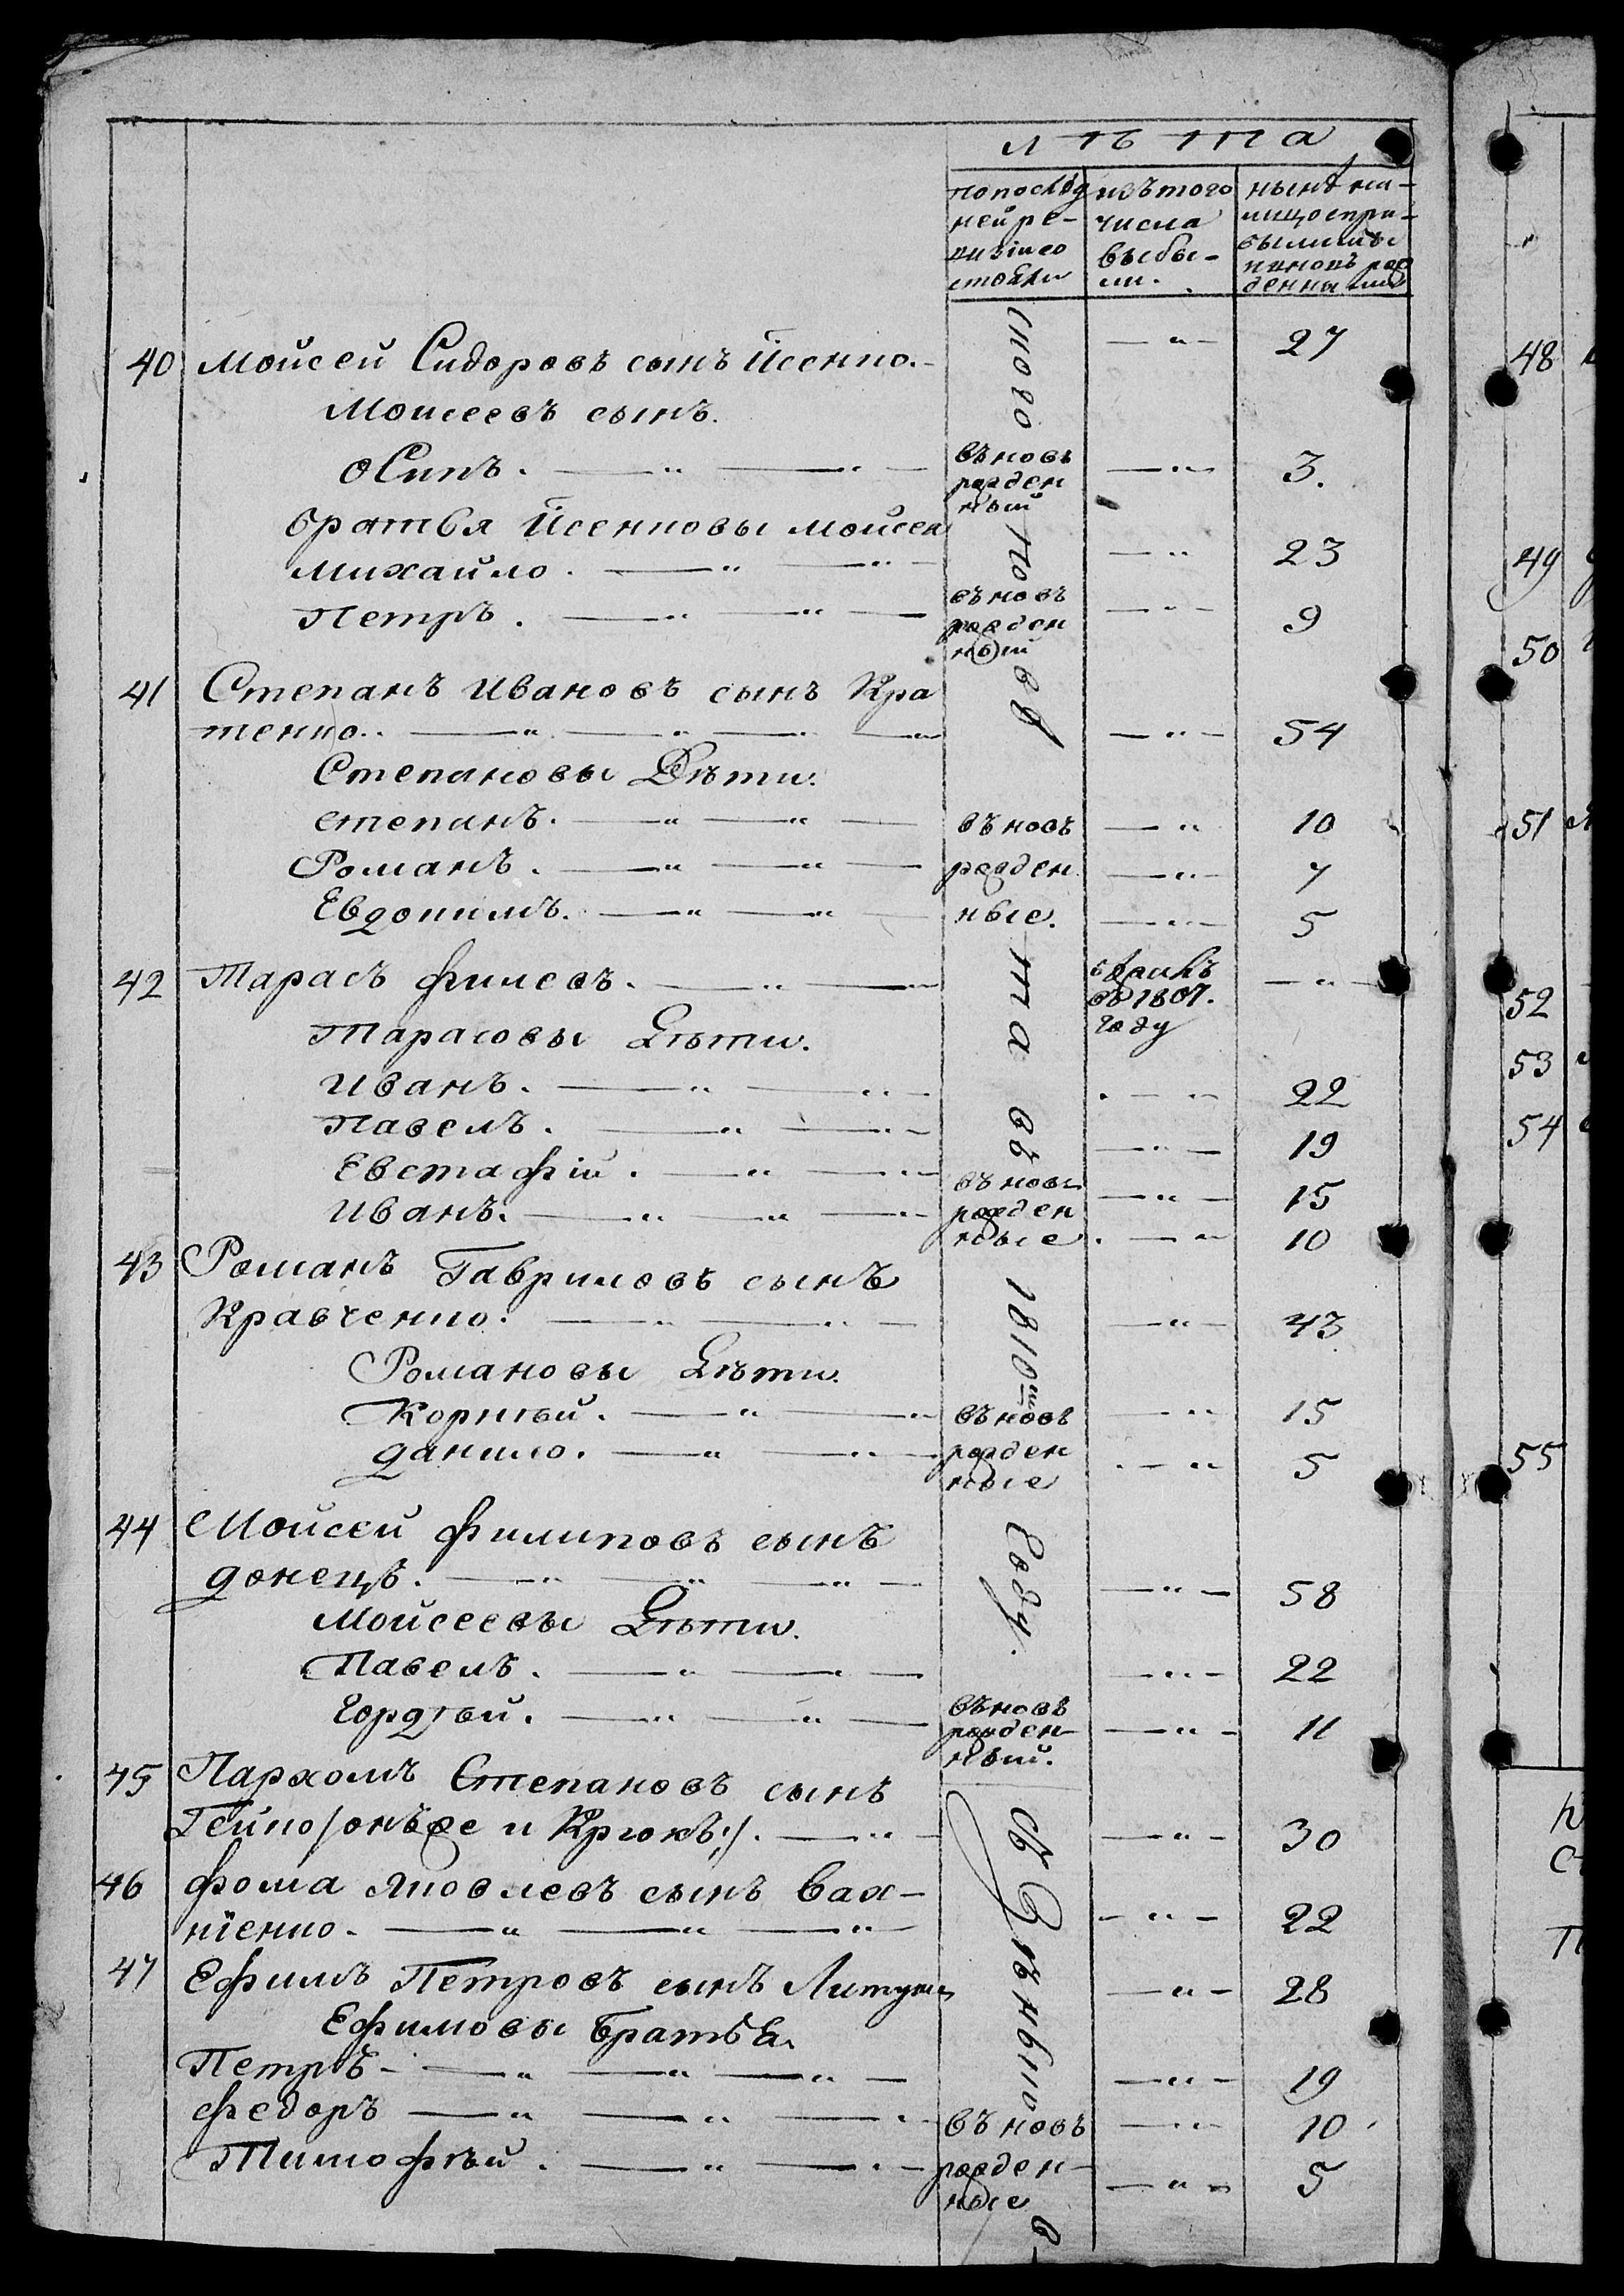 лѣта
попослѣд изътого нынѣ на
ней ре- числа лицо спри-
визіи со выбы- былыми
стояли ли. и вновь рож
денными
40 Мойсей Сидоровъ сынъ Исенко. — " — 27
Моисеевъ сынъ.
Осипъ. — " — въновь рожден ный — " — 3.
братья Исенковы мойсея
михайло. — " — 23
Петръ. — " — въновъ рожден ный — " — 9
41 Степанъ Ивановъ сынъ Кра
тенко. — " — 54
Степановы Дѣти.
степанъ. — " — въновъ — " — 10
Романъ. — " — рожден — " — 7
Евдокимъ. — " — ные. — " — 5
42 Тарасъ филевъ. — " — въ 1807. году — " —
Тарасовы Дѣти.
Иванъ. — " — 22
Павелъ. — " — 19
Евстафій. — " — въновь — " — 15
Иванъ. — " — рожден ные — " — 10
43 Романъ Гавриловъ сынъ
Кравченко. — " — 43
Романовы Дѣти.
Корнѣй. — " — въновъ — " — 15
данило. — " — рожден ные — " — 5
44 Мойсей филиповъ сынъ
донецъ. — " — 58
Мойсеевы Дѣти.
Павелъ. — " — 22
Гордѣй. — " — въновъ рожден ный. — " — 11
45 Пархомъ Степановъ сынъ
онъже и Крюкъ:/. — " — 30
46 фома Яковлевъ сынъ Вах-
ніенко. — " — 22
47 Ефимъ Петровъ сынъ — " — 28
Ефимовы братья.
Петръ — " — 19
федоръ — " — въновъ — " — 10
Тимофѣй. — " — рожден- ные — " — 5
1810го Году.
48
49
50
51
52
53
54
55